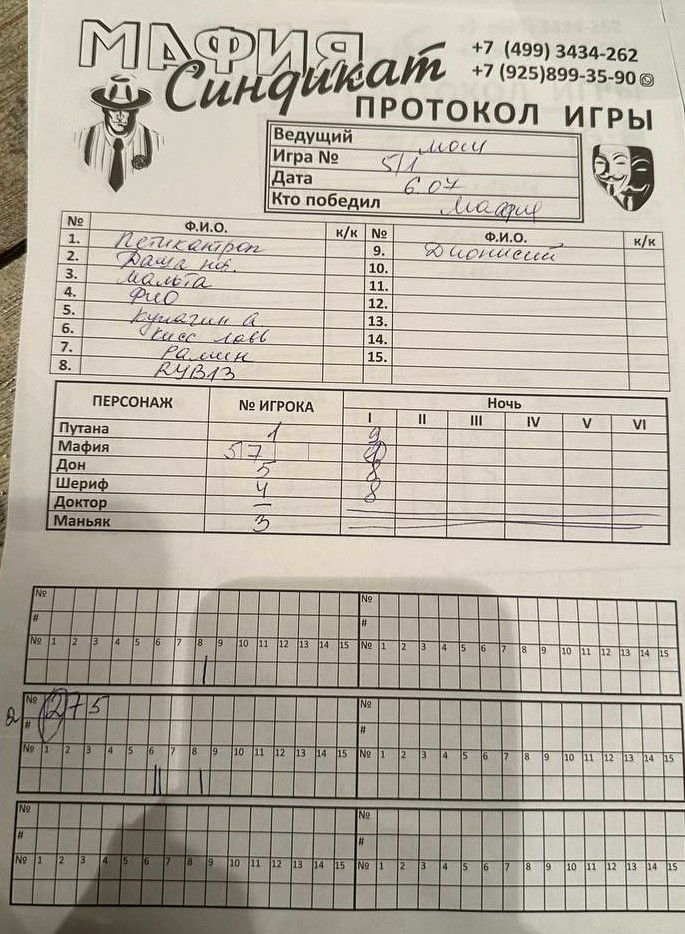 МАФИЯ
Синдикат
+7 (499) 3434-262
+7 (925)899-35-90
ПРОТОКОЛ ИГРЫ
Ведущий
Игра № 5/1
Дата 6 07
Кто победил Мафия
№ Ф.И.О. к/к № Ф.И.О. к/к
1. Петикантроп 9. Дионисий
2. Даша 10.
3. Мальта 11.
4. Фио 12.
5. Кулагин А 13.
6. Кисс Лавв 14.
7. Рамин 15.
8. RYB13
ПЕРСОНАЖ № ИГРОКА Ночь
I II III IV V VI
Путана 1 9
Мафия 5 7 1
Дон 5 8
Шериф 4 8
Доктор –
Маньяк 3
№ №
# #
№ 1 2 3 4 5 6 7 8 9 10 11 12 13 14 15 № 1 2 3 4 5 6 7 8 9 10 11 12 13 14 15
№ 2 7 5 №
# #
№ 1 2 3 4 5 6 7 8 9 10 11 12 13 14 15 № 1 2 3 4 5 6 7 8 9 10 11 12 13 14 15
№ №
# #
№ 1 2 3 4 5 6 7 8 9 10 11 12 13 14 15 № 1 2 3 4 5 6 7 8 9 10 11 12 13 14 15